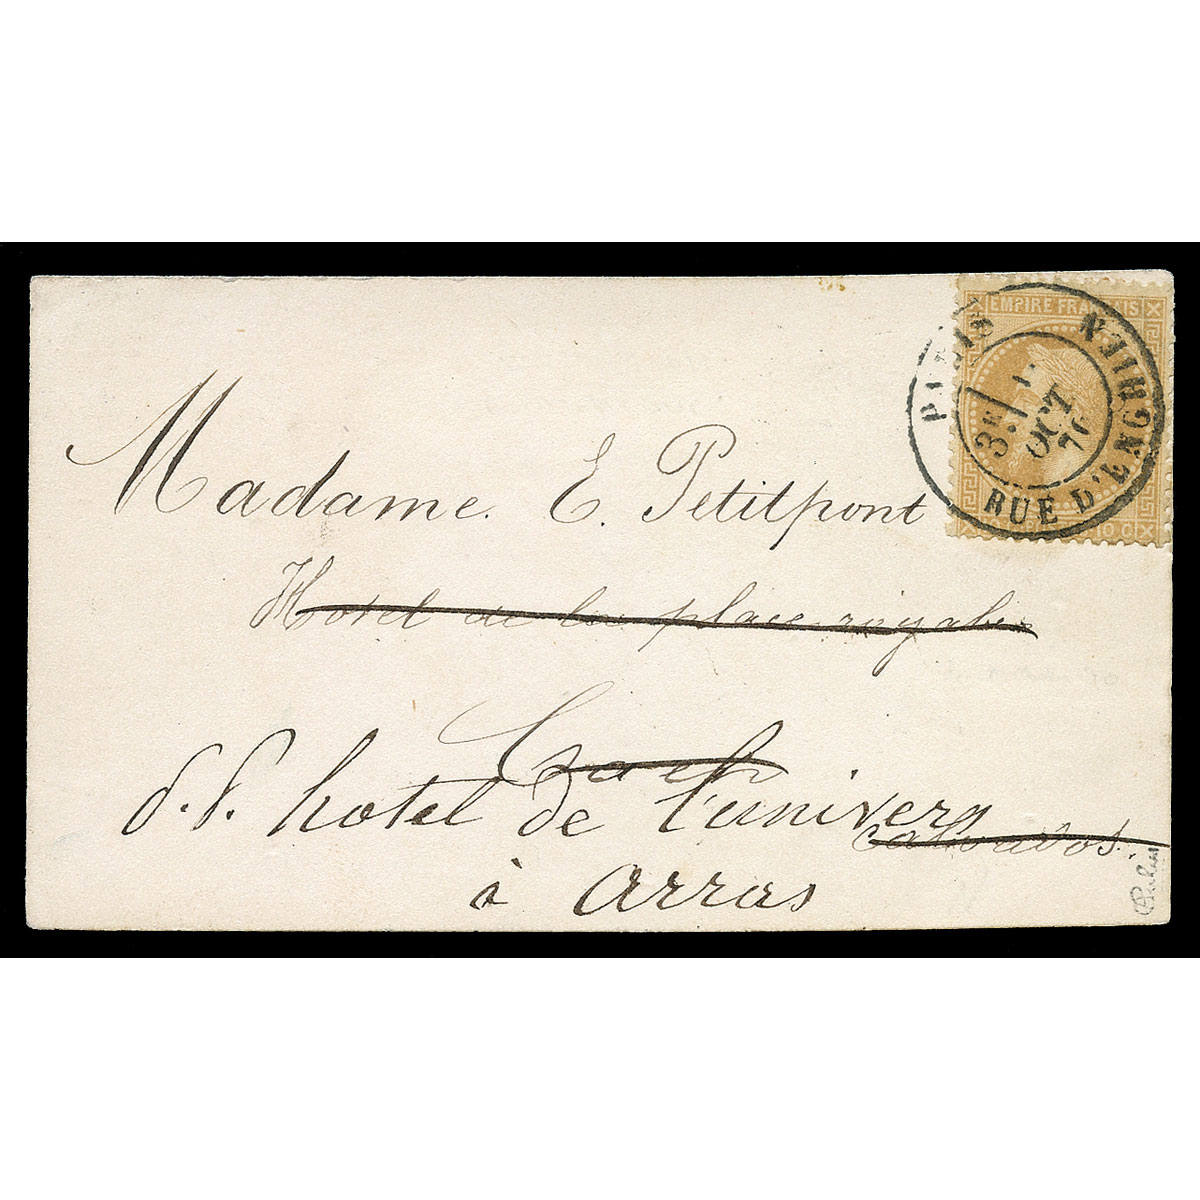 EMPIRE FRANÇAIS
PARIS RUE D'ENGHIEN
3E/
OCT
70
10 C
Madame E. Petitpont
Hotel de la place royale
Caen
d. d. hotel de l'univers
Calvados.
à arras